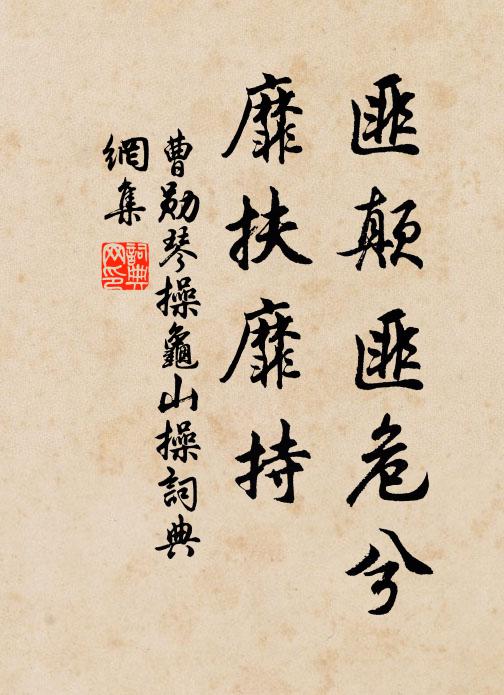 匪顛匪危兮
靡扶靡持
曹勛琴操龜山操詞典
網集
詞典
网印